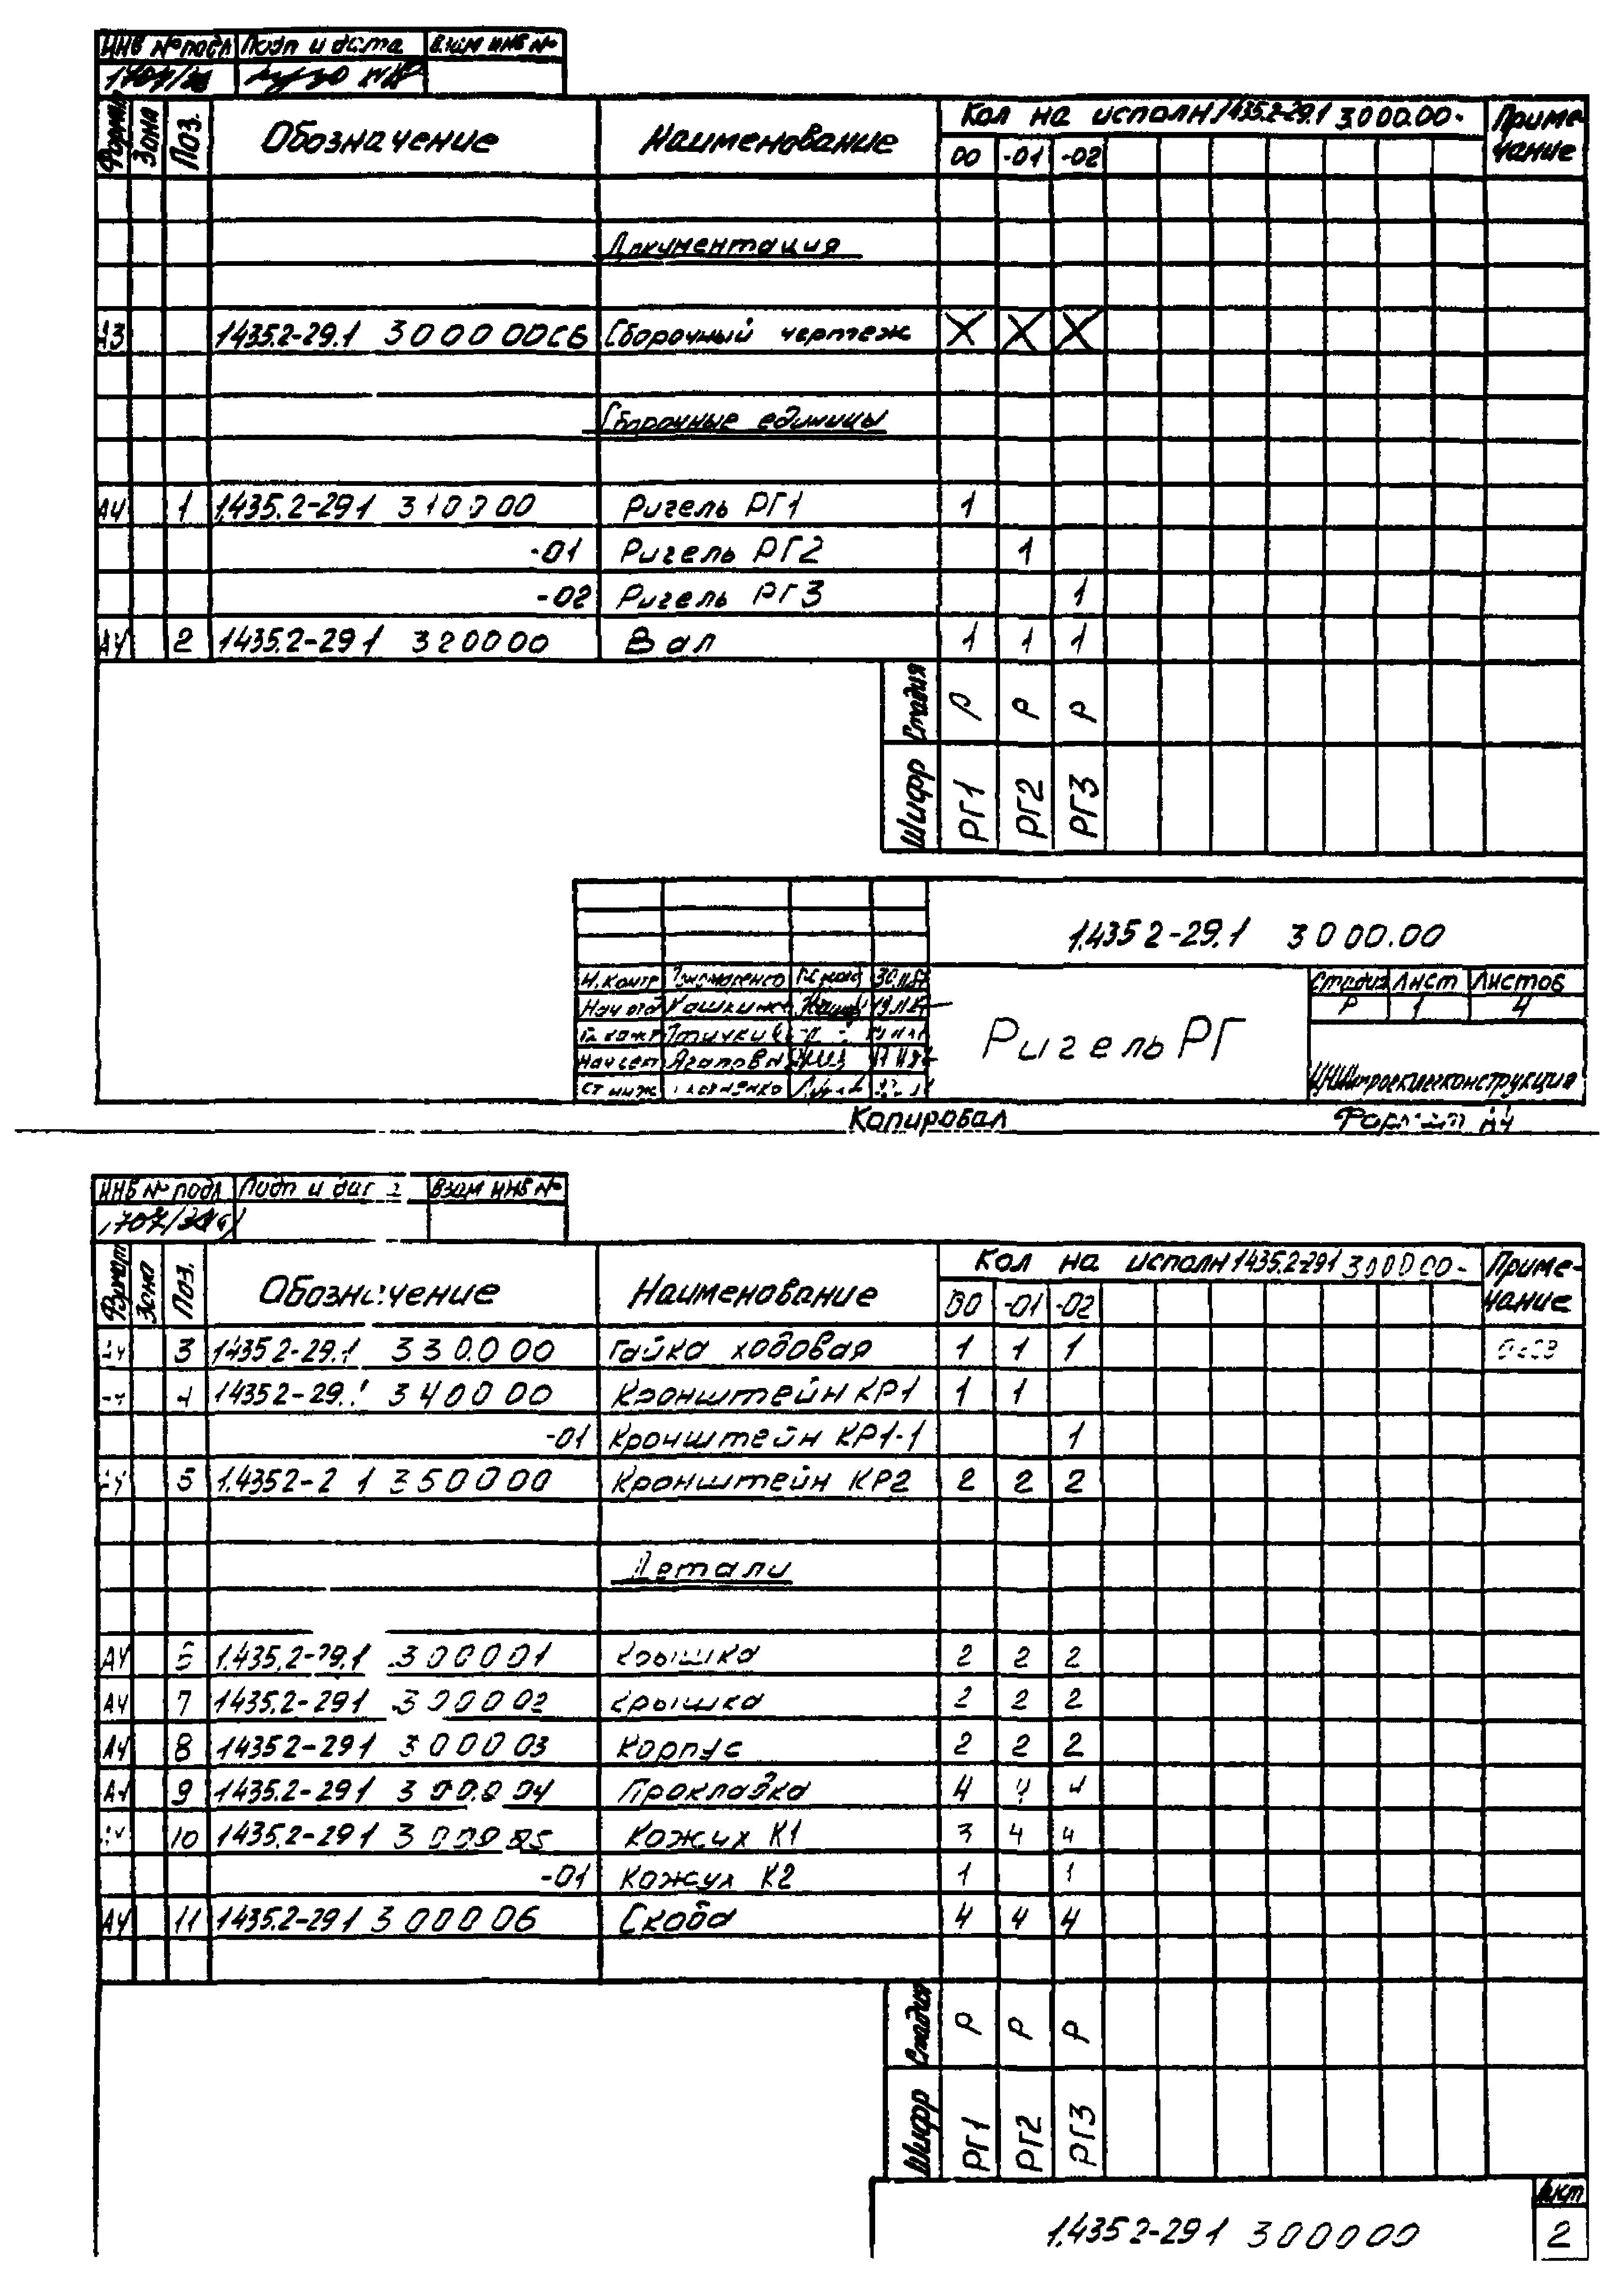 Инв № подл Подп и дата Взам инв №
Формат Зона Поз. Обозначение Наименование Кол на исполн 1.435.2-29.1 3.000.00- Приме-
00 -01 -02 чание
Документация
А3 1.435.2-29.1 300000СБ Сборочный чертеж X X X
Сборочные единицы
А4 1 1.435.2-29.1 310000 Ригель РГ1 1
-01 Ригель РГ2 1
-02 Ригель РГ3 1
А4 2 1.435.2-29.1 320000 Вал 1 1 1
Стадия Р Р Р
Шифр РГ1 РГ2 РГ3
1.435 2-29.1 3000.00
Н.контр
Нач отд
Нач сект
Ст инж
Ригель РГ
Стадия Лист Листов
Р 1 4
ЦНИИпроектлегконструкция
Копировал Формат А4
Инв № подл Подп и дата Взам инв №
Формат Зона Поз. Обозначение Наименование Кол на исполн 1.435.2-29.1 300000- Приме-
00 -01 -02 чание
3 1.435 2-29.1 330.0 00 Гайка ходовая 1 1 1
4 1.435 2-29.1 340000 Кронштейн КР1 1 1
-01 Кронштейн КР1-1 1
5 1.4352-2 1 350000 Кронштейн КР2 2 2 2
Детали
А4 6 1.435.2-29.1 300001 Крышка 2 2 2
А4 7 1.435.2-291 300002 Крышка 2 2 2
А4 8 1.435 2-291 300003 Корпус 2 2 2
А4 9 1.435.2-291 300.0 04 Прокладка 4 4 4
10 1.435.2-291 300005 Кожух К1 3 4 4
-01 Кожух К2 1 1
А4 11 1.435.2-291 300006 Скоба 4 4 4
Стадия Р Р Р
Шифр РГ1 РГ2 РГ3
1.435 2-291 300000
Лист
2